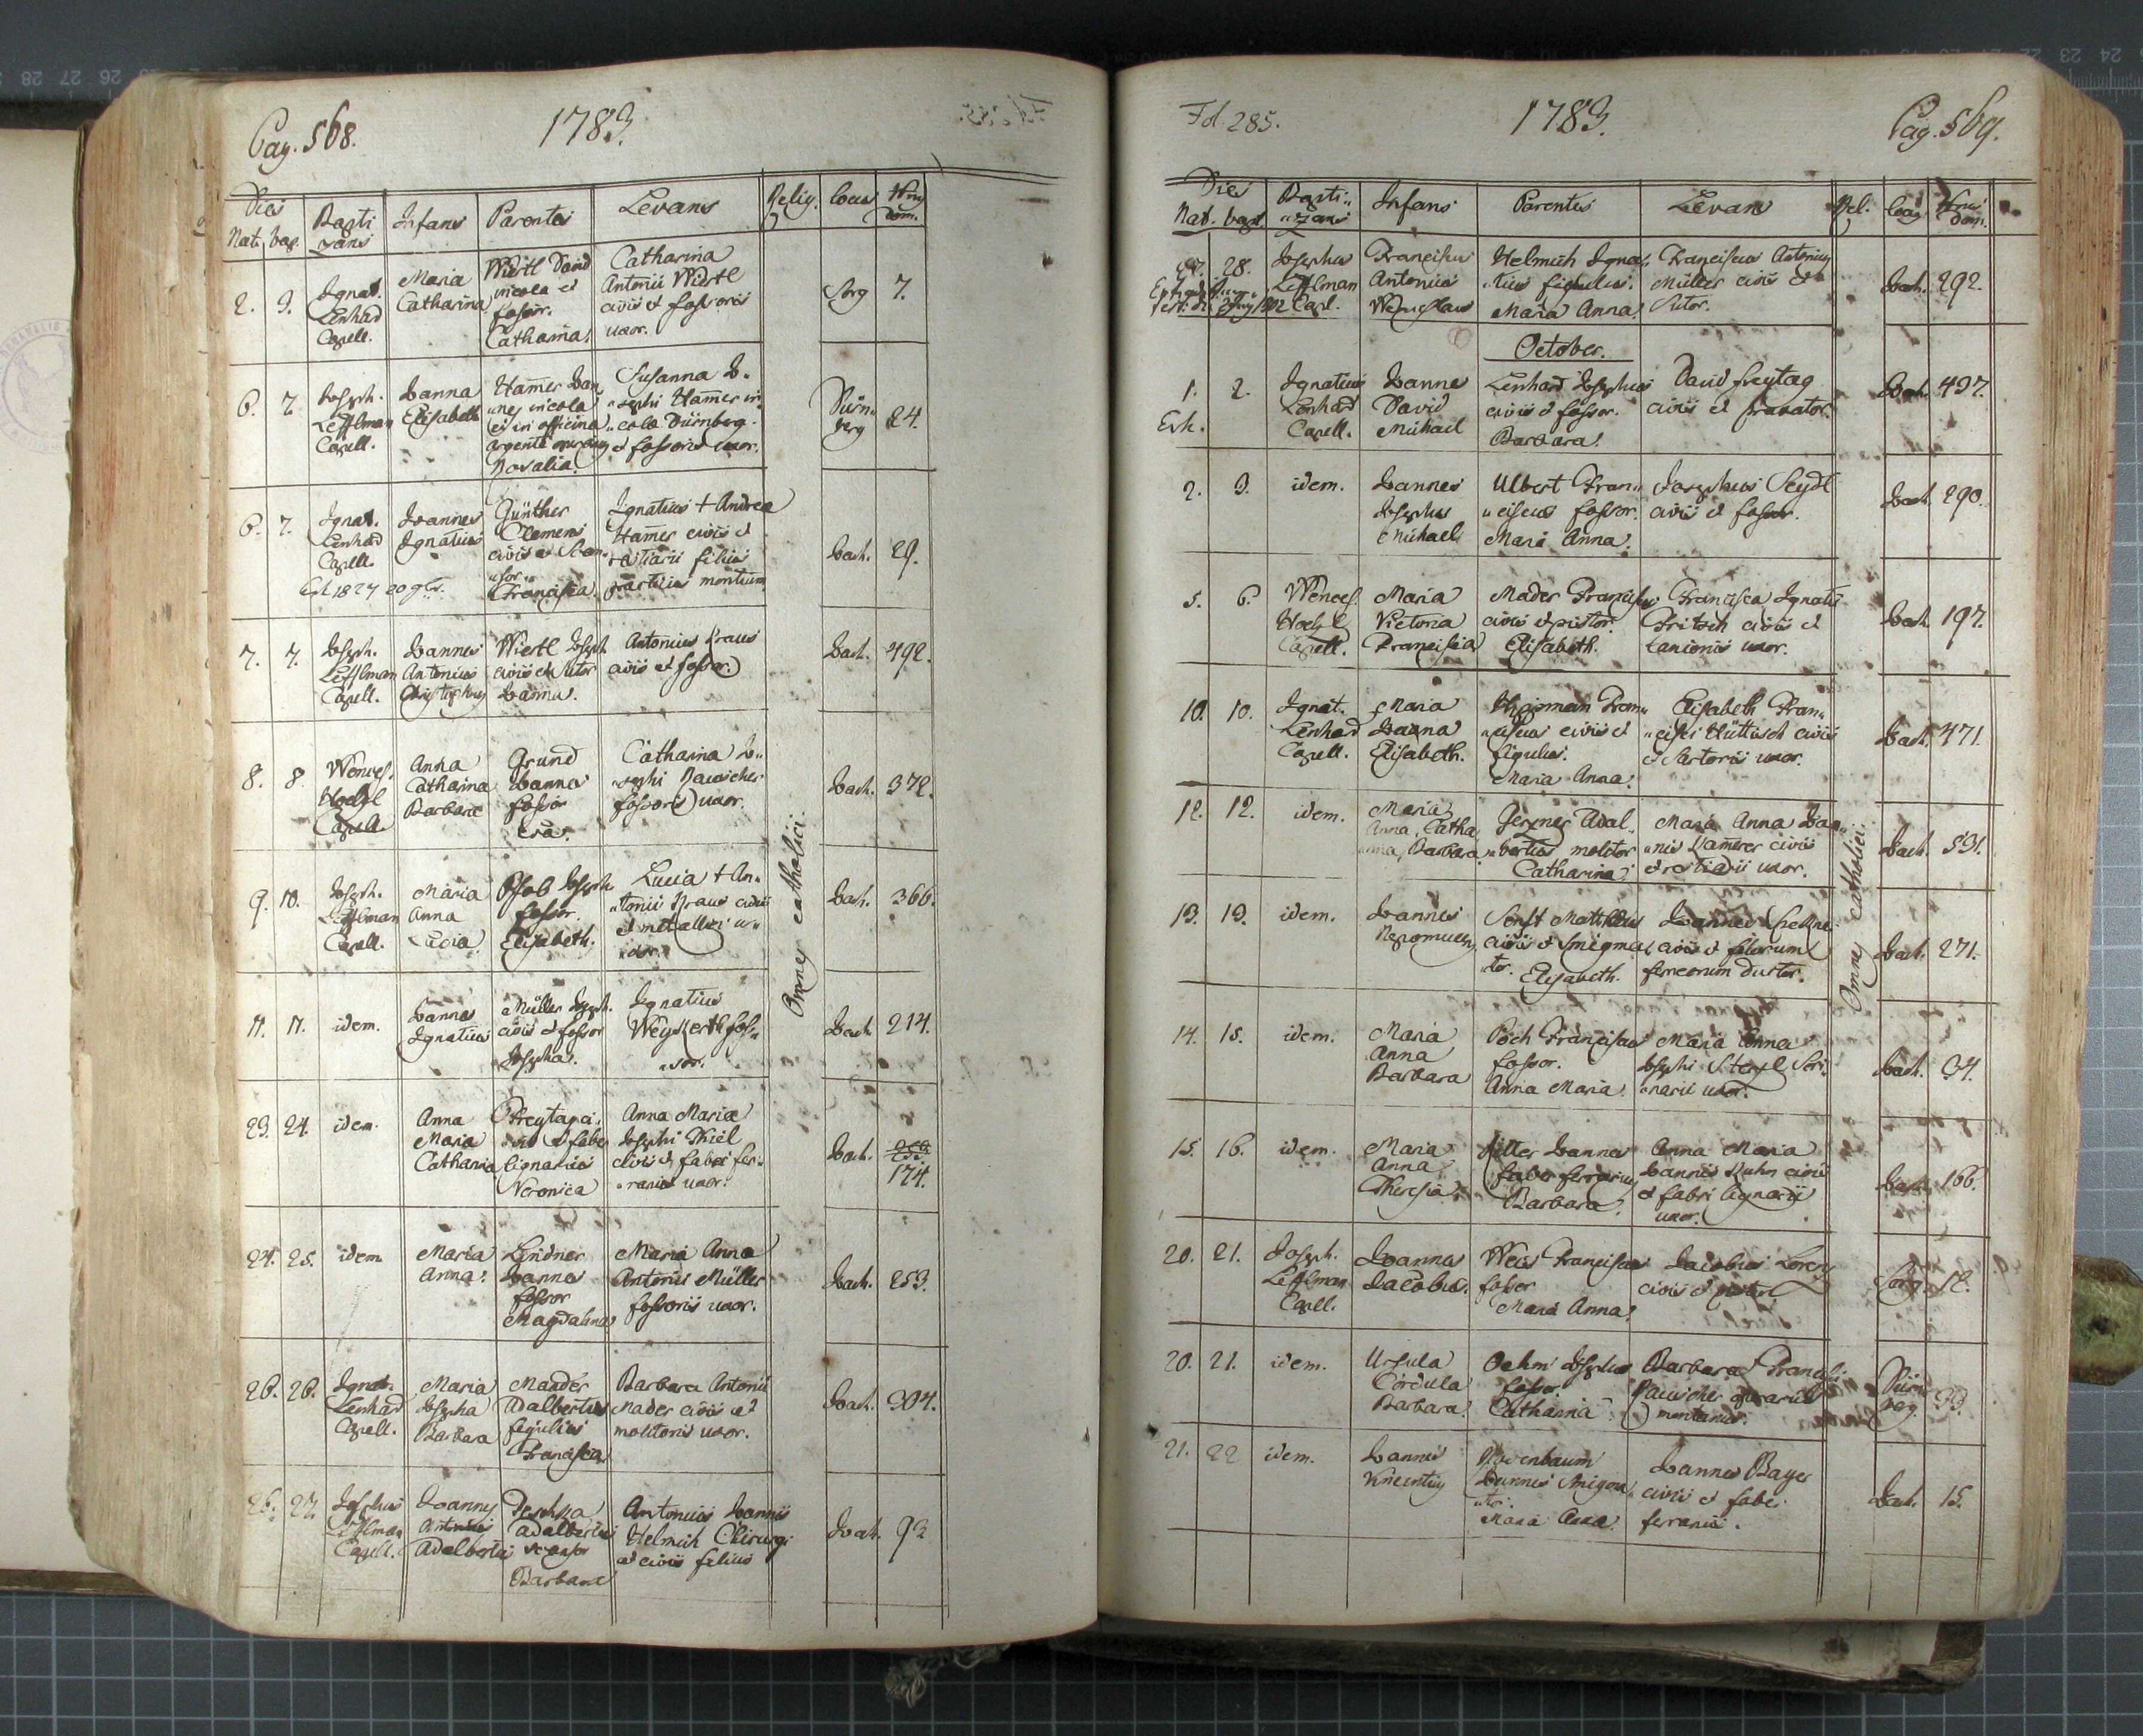 Pag. 568. 1783.
Dies
Nat. bap. Bapti
zans Infans Parentes Levans Relig. locus Nrus
dom.
2. 3. Ignat.
Lenhard
Capell. Maria
Catharina Wiertl David
incola et
fossor.
Catharina Catharina
Antonii Wiertl
civis et fossoris
uxor. Sorg 7.
6. 7. Joseph.
Lefflman
Capell. Joanna
Elisabeth Hamer Joan„
„nes incola
et in officina
argenti
Rosalia. Susanna Jo„
„sephi Hamer in„
„cola Dürnberg.
et fossoris uxor. Dürn„
berg 24.
6. 7. Ignat.
Lenhard
Capell. Joannes
Ignatius Günther
Clemens
civis et
Francisca. Ignatius + Andrea
Hamer civis et
restiarii filius
montium
1827 20 Joach. 29.
7. 7. Joseph.
Lefflman
Capell. Joannes
Antonius
Wiertl Joseph
civis et Sutor
Joanna. Antonius Kraus
civis et fossor. Joach. 492.
8. 8. Wences.
Capell. Anna
Catharina
Barbara Grund
Joannes
fossor
Eva. Catharina Jo„
„sephi
fossoris uxor. Joach. 372.
9. 10. Joseph.
Lefflman
Capell. Maria
Anna
Lucia Joseph
fossor.
Elisabeth. Lucia + An„
„tonii Kraus civis
et metallici u„
„xor. Joach. 366.
11. 11. idem. Joannes
Ignatius Müller Joseph.
civis et fossor
Josepha. Ignatius
Weykerth fos„
„sor. Joach. 214.
23. 24. idem. Anna
Maria
Catharina Freytag ci„
„vis et faber
lignarius
Veronica Anna Maria
Josephi Thiel
civis et fabri fer„
„rarii uxor. Joach. 174.
24. 25. idem Maria
Anna. Lindner
Joannes
fossor
Magdalena Maria Anna
Antonii Müller
fossoris uxor. Joach. 253.
26. 26. Ignat.
Lenhard
Capell. Maria
Josepha
Barbara Maader
Adalbertus
figulus
Francisca Barbara Antonii
Mader civis et
molitoris uxor. Joach. 304.
26. 27. Josephus
Lefflman
Capell. Joannes
Antonius
Adalbertus
Adalbertus
Barbara Antonius Joannis
Helmich Chirurgi
et civis filius Joach. 92
Omnes catholici.
Fol 285. 1783. Pag. 569.
Dies
Nat. bapt. Bapti„
„zans Infans Parentes Levans Rel. locus Nrus
Dom.
27. 28. Josephus
Lefflman
Capl. Franciscus
Antonius
Wenceslaus Helmich Igna„
„tius figulus.
Maria Anna. Franciscus Antonius
Müller civis et
Sutor. Joach. 292.
October.
1. 2. Ignatius
Lenhard
Capell. Joannes
David
Michael Lenhard Josephus
civis et fossor.
Barbara. David Freytag
civis et Joach. 437.
2. 3. idem. Joannes
Josephus
Michael Ulbert Fran„
„ciscus fossor.
Maria Anna. Josephus Seydl
civis et fossor. Joach. 290.
5. 6. Wences.
Capell. Maria
Victoria
Francisca Mader Franciscus
civis et pistor.
Elisabeth. Francisca Ignatii
Fritsch civis et
lanionis uxor. Joach. 197.
10. 10. Ignat.
Lenhard
Capell. Maria
Joanna
Elisabeth. Fran„
„ciscus civis et
figulus.
Maria Anna. Elisabeth Fran„
„cisci Hüttisch civis
et Sartoris uxor. Joach. 471.
12. 12. idem. Maria
Anna, Catha
rina, Barbara Adal„
„bertus molitor
Catharina. Maria Anna Joan„
„nis Hamerer civis
et restiarii uxor. Joach. 531.
13. 13. idem. Joannes
Nepomucen. Matthaus
civis et Smigma„
„tor. Elisabeth. Joannes
civis et filorum
ferreorum ductor. Joach. 271.
14. 15. idem. Maria
Anna
Barbara Poch Franciscus
fossor.
Anna Maria. Maria Anna
Josephi Scri„
„narii uxor. Joach. 34.
15. 16. idem. Maria
Anna
Theresia. Joannes
faber ferrarius
Barbara. Anna Maria
Joannis Kuhn civis
et fabri lignarii
uxor. Joach. 166.
20. 21. Joseph.
Lefflman
Capell. Joannes
Jacobus. Weis Franciscus
fossor
Maria Anna. Jacobus Lorenz
civis et Sorg. 12.
20. 21. idem. Ursula
Cordula
Barbara. Oehm Josephus
fossor.
Catharina Barbara Francisci
montanus. Dürn
berg. 33.
21. 22 idem. Joannes
Rosenbaum
Joannes Smigma„
„tor.
Maria Anna. Joannes Bayer
civis et faber
ferrarius. Joach. 15.
Omnes catholici.